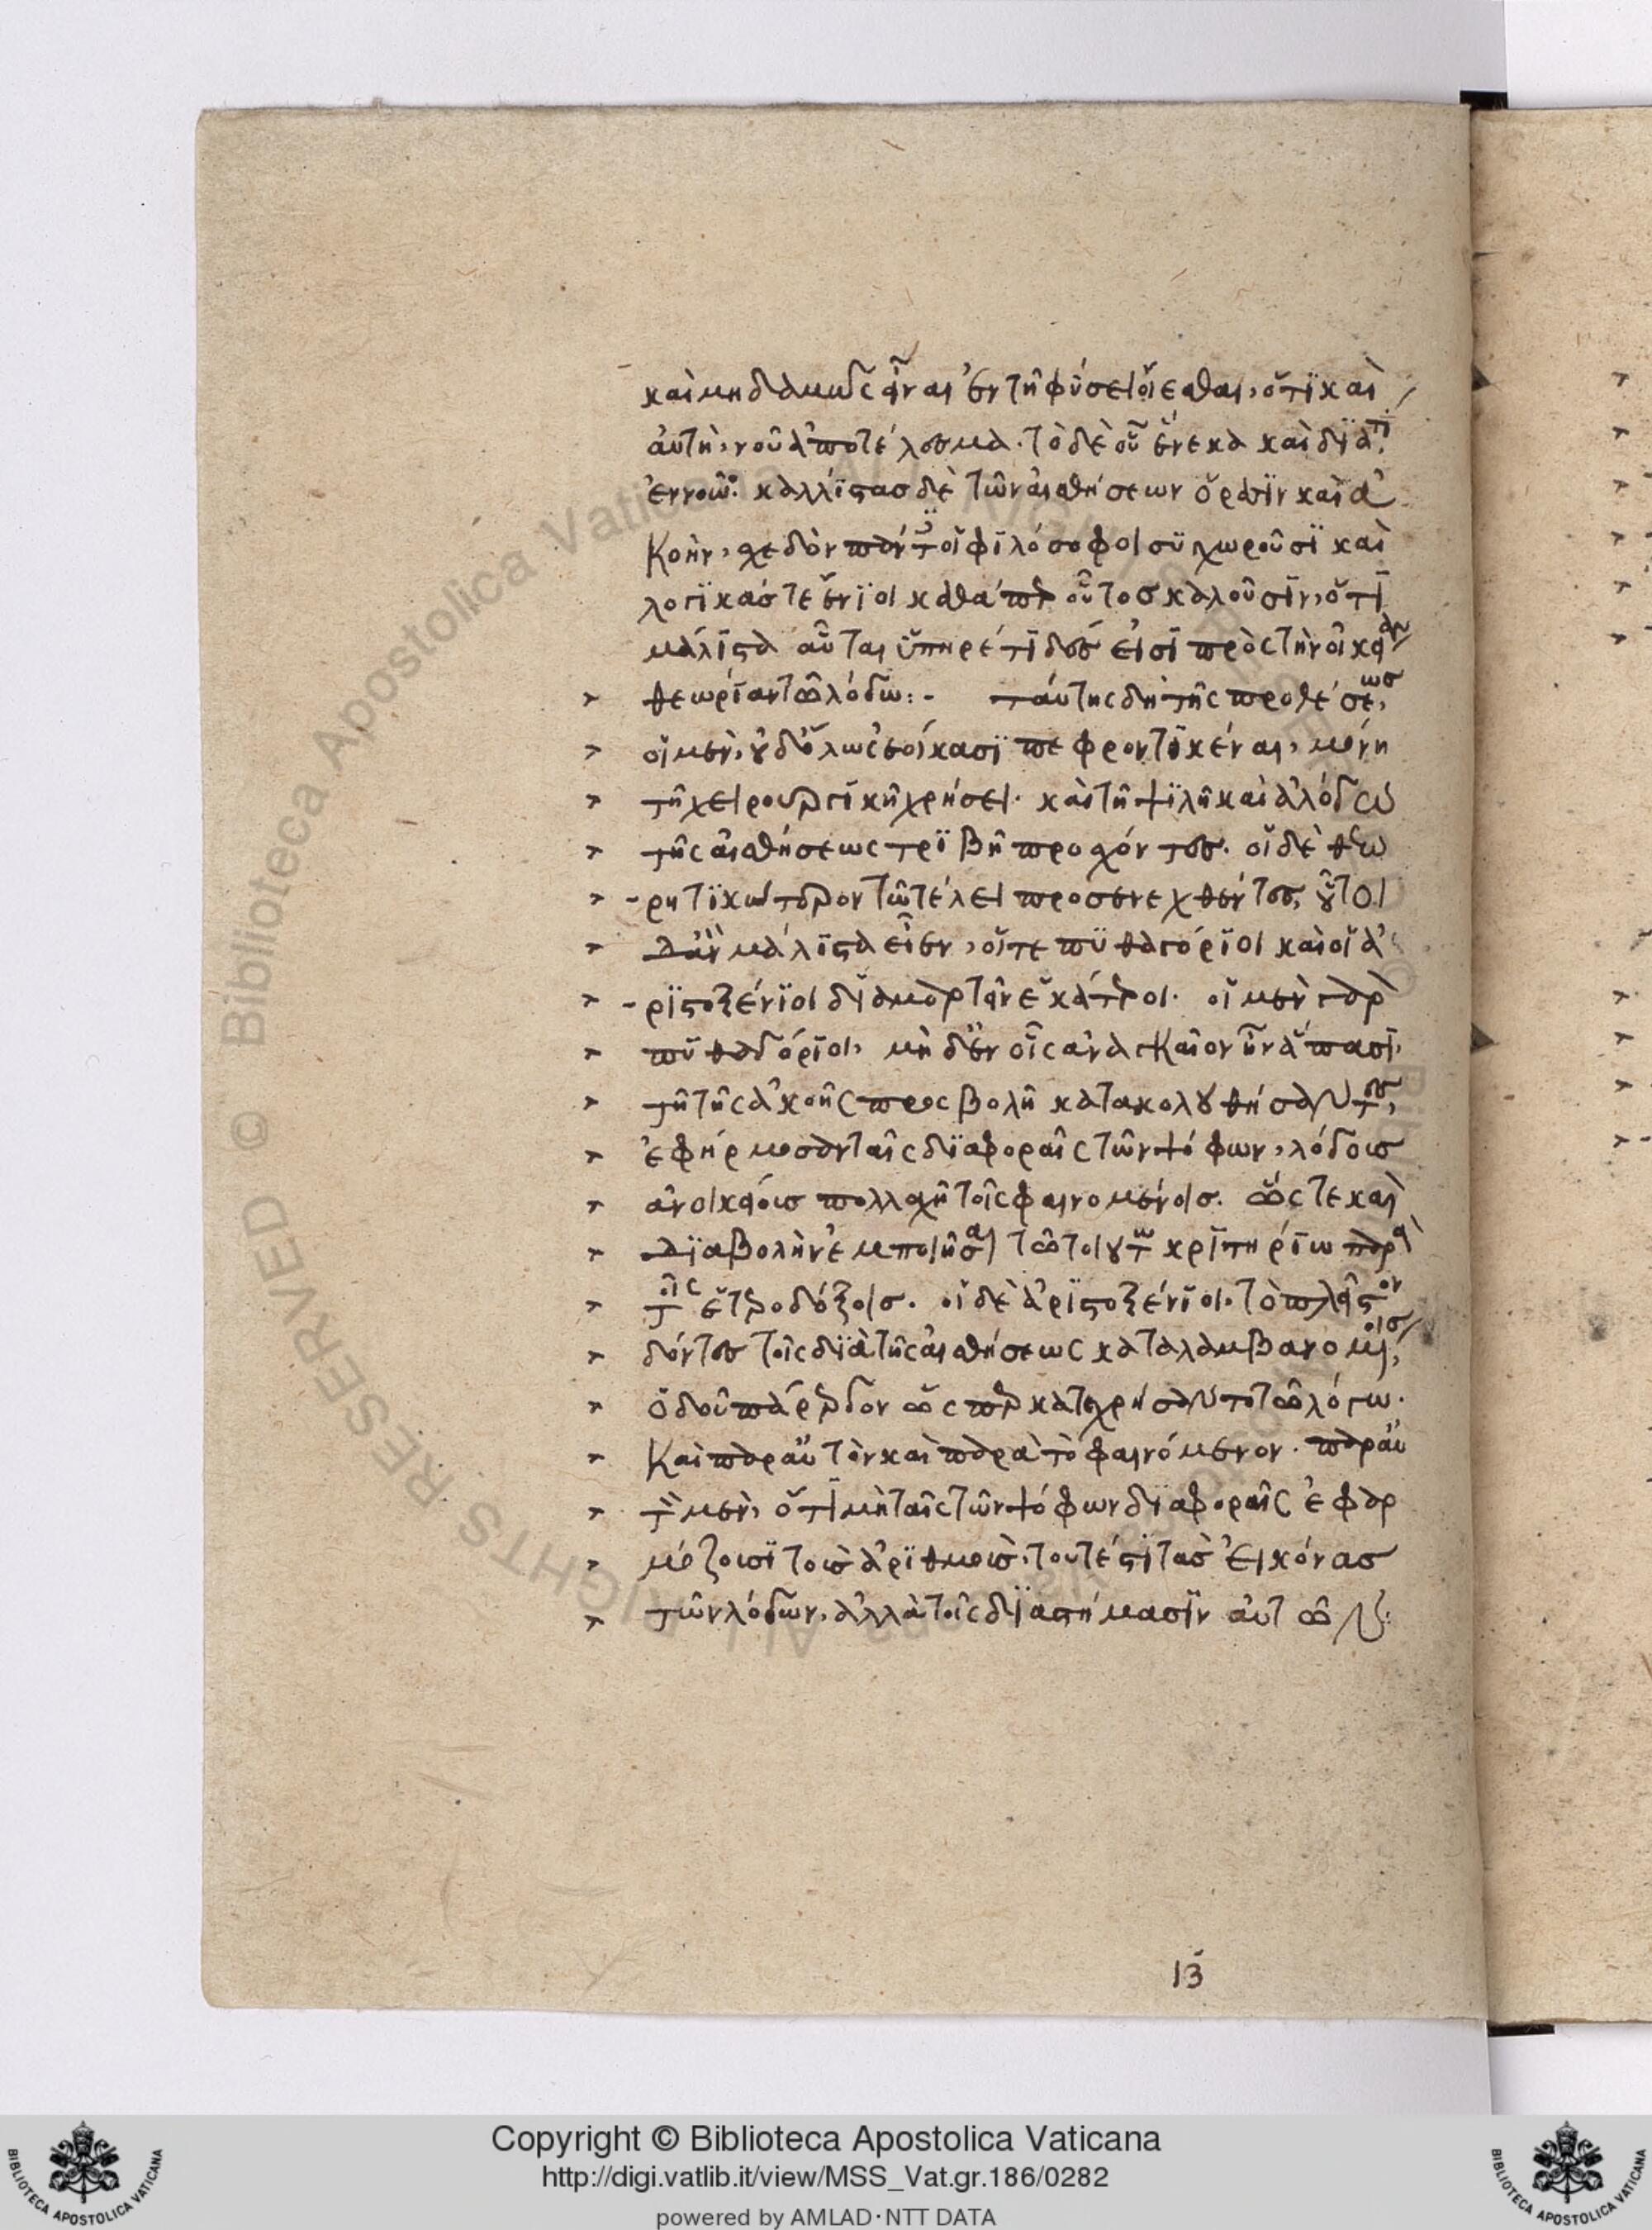 καὶ μηδαμῶς εἶναι ἐν τῆ φύσει οἴεσθαι, ὅτι καὶ
αὐτὴ, νοῦ ἀποτέλεσμα. τὸ δὲ οὗ ἕνεκα καὶ διατί,
ἐννοῶν. καλλίστας δὲ τῶν αἰσθήσεων ὅρασιν καὶ ἀ
κοὴν, σχεδὸν πάντες οἱ φιλόσοφοι συγχωροῦσι καὶ
λογικάς τε ἔνιοι καθάπερ οὗτος καλοῦσιν, ὅτι
μάλιστα αὗται ὑπηρέτιδές εἰσι πρὸς τὴν οἰκείαν
> θεωρίαν τῶ λόγω:- ταύτης δὴ τῆς προθέσεως,
> οἱ μὲν, οὐδόλως ἐοίκασι πεφροντικέναι, μόνη
> τῆ χειρουργικῆ χρήσει. καὶ τῆ ψιλῆ καὶ ἀλόγω
> τῆς αἰσθήσεως τριβῆ προσχόντες. οἱ δὲ θεω
> -ρητικώτερον τῶ τέλει προσενεχθέντες, οὗτοι
> δ' ἂν μάλιστα εἶεν, οἵτε πυθαγόριοι καὶ οἱ ἀ
> -ριστοξένιοι διαμαρτεῖν ἑκάτεροι. οἱ μὲν γὰρ
> πυθαγόριοι, μὴδ' ἐν οἷς ἀναγκαῖον ἦν ἅπασι,
> τῆ τῆς ἀκοῆς προςβολῆ κατακολουθήσαντες,
> ἐφήρμοσαν ταῖς διαφοραῖς τῶν ψόφων, λόγους
> ἀνοικείους πολλαχῆ τοῖς φαινομένοις. ὥςτε καὶ
> διαβολὴν ἐμποιῆσαι τῶ τοιούτω κριτηρίω παρὰ
> τοῖς ἑτεροδόξοις. οἱ δὲ ἀριστοξένιοι, τὸ πλεῖστον
> δόντες τοῖς διὰ τῆς αἰσθήσεως καταλαμβανομένοις,
> ὁδοῦ πάρεργον ὥςπερ κατεχρήσαντο τῶ λόγω.
> Καὶ παρ' αὐτὸν καὶ παρὰ τὸ φαινόμενον. παρ' αὐ
> τὸν μὲν, ὅτι μὴ ταῖς τῶν ψόφων διαφοραῖς ἐφαρ
> μόζουσι τοὺς ἀριθμοὺς, τουτέστι τὰς εἰκόνας
> τῶν λόγων, ἀλλὰ τοῖς διαστήμασιν αὐτῶν.
13
Copyright © Biblioteca Apostolica Vaticana
http://digi.vatlib.it/view/MSS_Vat.gr.186/0282
powered by AMLAD·NTT DATA